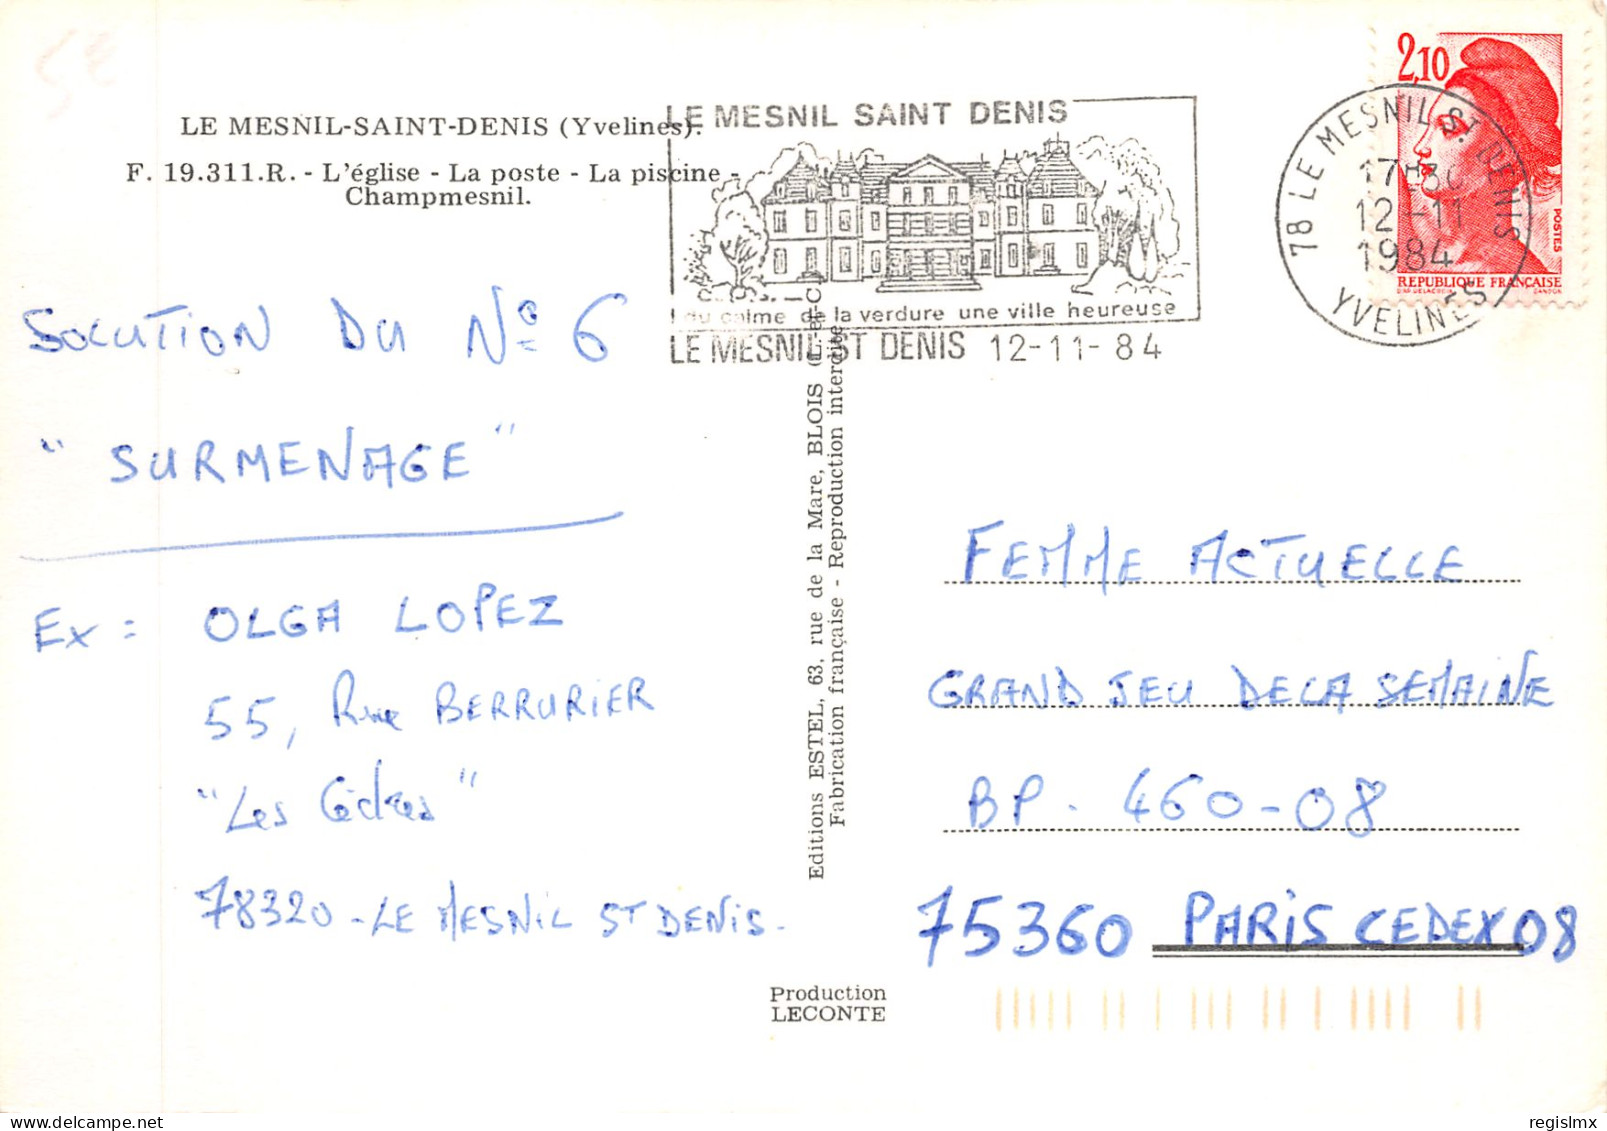 LE MESNIL-SAINT-DENIS (Yvelines).
F. 19.311.R. - L'église - La poste - La piscine -
Champmesnil.
SOLUTION DU N° 6
"SURMENAGE"
Ex : OLGA LOPEZ
55, Rue BERRURIER
"Les Cèdres"
78320 - LE MESNIL ST DENIS -
Editions ESTEL, 63, rue de la Mare, BLOIS (L.-et-C.)
Fabrication française - Reproduction interdite
Production
LECONTE
LE MESNIL SAINT DENIS
du calme de la verdure une ville heureuse
LE MESNIL ST DENIS 12-11-84
78 LE MESNIL ST DENIS
17H30
12-11
1984
YVELINES
2,10
POSTES
REPUBLIQUE FRANÇAISE
FEMME ACTUELLE
GRAND JEU DE LA SEMAINE
BP. 460-08
75360 PARIS CEDEX 08
regislmx